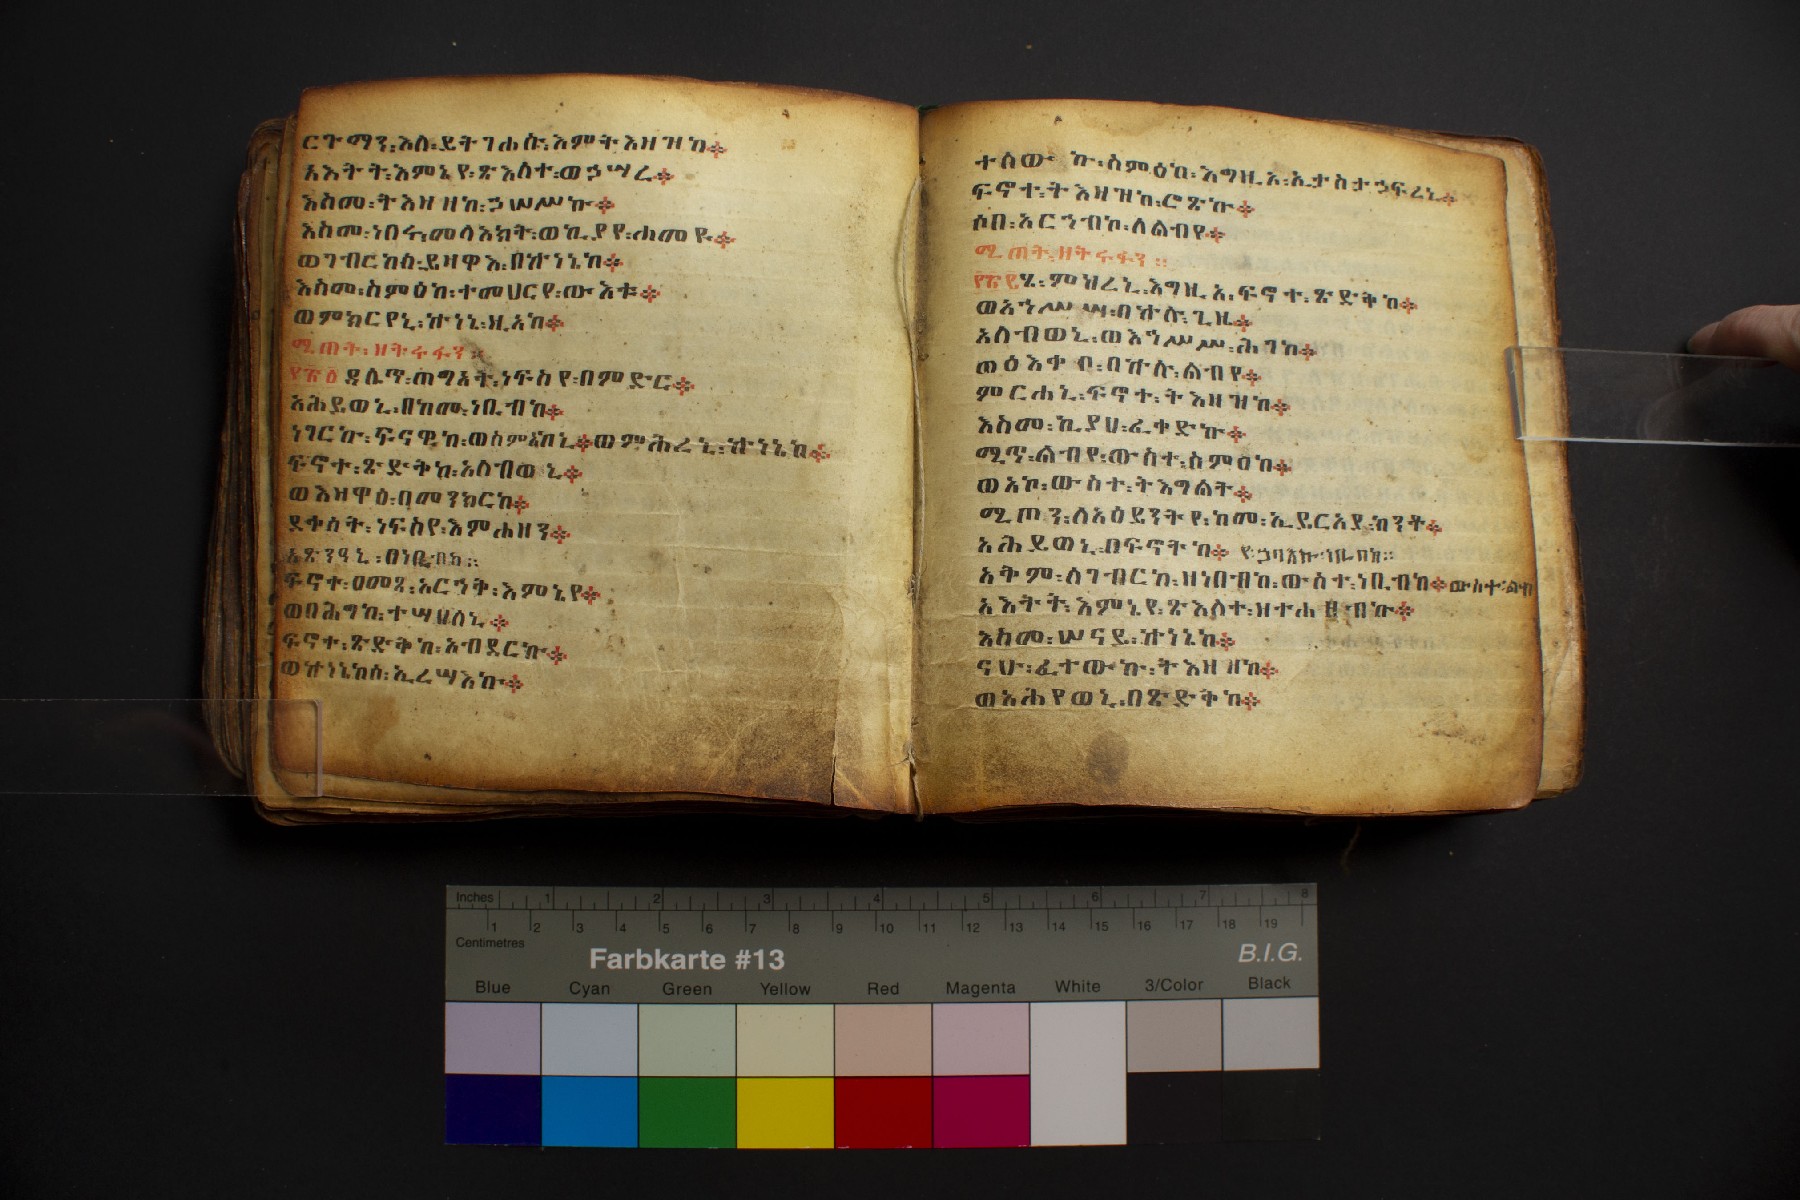 ርጉማን፡እለ፡ይትገሐሱ፡እምትእዛዝከ፨
አእትት፡እምኔየ፡ጽእለተ፡ወኃሣረ፨
እስመ፡ትእዛዘከ፡ኃሠሥኩ፨
እስመ፡ነበሩ፡መላእክት፡ወኪያየ፡ሐመዩ፨
ወገብርከሰ፡ይዛዋእ፡በኵነኔከ፨
እስመ፡ስምዕከ፡ተመህርየ፡ውእቱ፨
ወምክርየኒ፡ኵነኔ፡ዚአከ፨
ሚጠት፡ዘትሩፋን፡፡
ዳሌጥ፡ጠግአት፡ነፍስየ፡በምድር፨
አሕይወኒ፡በከመ፡ነቢብከ፨
ነገርኩ፡ፍናዊከ፡ወስምዐከኒ፨ወምሕረኒ፡ኵነኔከ፨
ፍኖተ፡ጽድቅከ፡አለብወኒ፨
ወእዛዋዕ፡በመንክርከ፨
ደቀሰት፡ነፍስየ፡እምሐዘን፨
አጽንዓኒ፡በነቢብከ፡፡
ፍኖተ፡ዐመፃ፡አርኅቅ፡እምኔየ፨
ወበሕግከ፡ተሣሀለኒ፨
ፍኖተ፡ጽድቅከ፡አብደርኩ፨
ወኵነኔከሰ፡ኢረሣእኩ፨
ተለውኩ፡ስምዕከ፡እግዚአ፡ኢታስታኃፍረኒ፨
ፍኖተ፡ትእዛዝከ፡ሮጽኩ፨
ሶበ፡አርኀብኮ፡ለልብየ፨
ሚጠት፡ዘትሩፋን፡፡
ሄ፡ምህረኒ፡እግዚአ፡ፍኖተ፡ጽድቅከ፨
ወእኀሥሣ፡በኵሉ፡ጊዜ፨
አለብወኒ፡ወእኀሥሥ፡ሕገከ፨
ወዕእቀቦ፡በኵሉ፡ልብየ፨
ምርሐኒ፡ፍኖተ፡ትእዛዝከ፨
እስመ፡ኪያሀ፡ፈቀድኩ፨
ሚጥ፡ልብየ፡ውስተ፡ስምዕከ፨
ወአኮ፡ውስተ፡ትእግልት፨
ሚጦን፡ለአዕይንትየ፡ከመ፡ኢይርአያ፡ከንቶ፨
አሕይወኒ፡በፍኖትከ፨
አቅም፡ለገብርከ፡ዘነበብከ፡ውስተ፡ነቢብከ፨ውስተ፡ልብ
አእትት፡እምኔየ፡ጽእለተ፡ዘተሐዘብኩ፨
እስመ፡ሠናይ፡ኵነኔከ፨
ናሁ፡ፈተውኩ፡ትእዛዘከ፨
ወአሕየወኒ፡በጽድቅከ፨
Inches 1 2 3 4 5 6 7 8
1 2 3 4 5 6 7 8 9 10 11 12 13 14 15 16 17 18 19
Centimetres
Farbkarte #13 B.I.G.
Blue Cyan Green Yellow Red Magenta White 3/Color Black